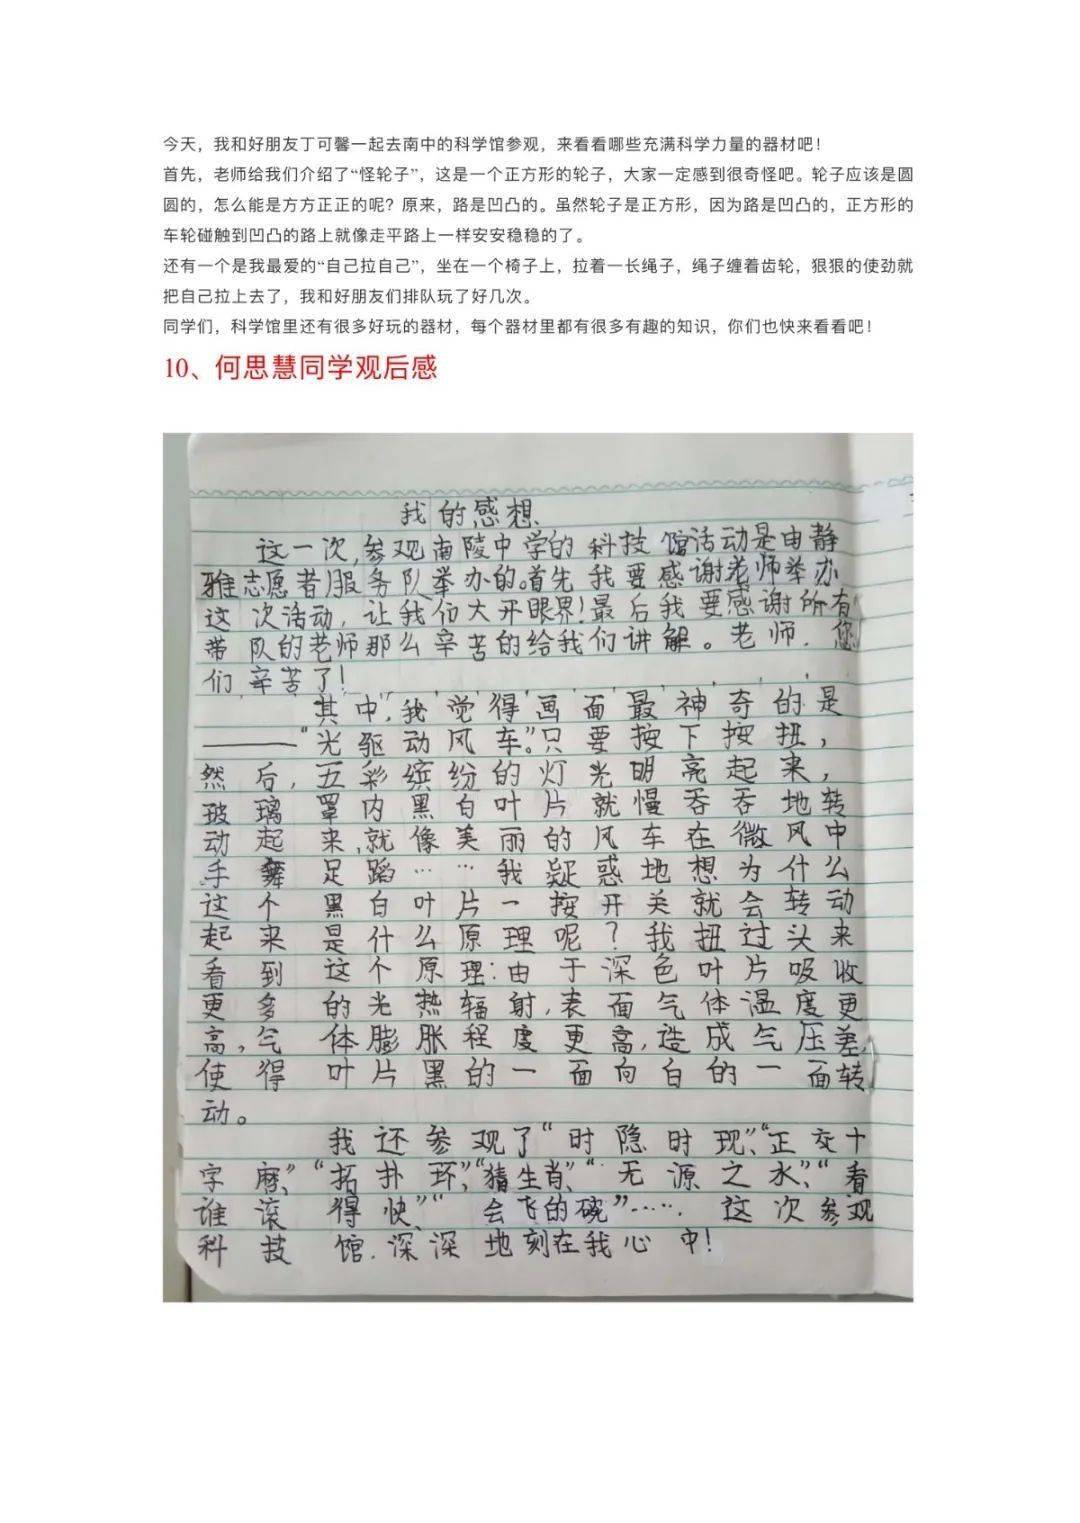 今天，我和好朋友丁可馨一起去南中的科学馆参观，来看看哪些充满科学力量的器材吧！
首先，老师给我们介绍了“怪轮子”，这是一个正方形的轮子，大家一定感到很奇怪吧。轮子应该是圆
圆的，怎么能是方方正正的呢？原来，路是凹凸的。虽然轮子是正方形，因为路是凹凸的，正方形的
车轮碰触到凹凸的路上就像走平路上一样安安稳稳的了。
还有一个是我最爱的“自己拉自己”，坐在一个椅子上，拉着一长绳子，绳子缠着齿轮，狠狠的使劲就
把自己拉上去了，我和好朋友们排队玩了好几次。
同学们，科学馆里还有很多好玩的器材，每个器材里都有很多有趣的知识，你们也快来看看吧！
10、何思慧同学观后感
我的感想
这一次,参观南陵中学的科技馆活动是由静
雅志愿者服务队举办的。首先我要感谢老师举办
这次活动，让我们大开眼界！最后我要感谢所有
带队的老师那么辛苦的给我们讲解。老师．您
们辛苦了！
其中，我觉得画面最神奇的是
——“光驱动风车”。只要按下按扭，
然后，五彩缤纷的灯光明亮起来，
玻璃罩内黑白叶片就慢吞吞地转
动起来,就像美丽的风车在微风中
手舞足蹈……我疑惑地想为什么
这个黑白叶片一按开关就会转动
起来是什么原理呢？我扭过头来
看到这个原理：由于深色叶片吸收
更多的光热辐射,表面气体温度更
高,气体膨胀程度更高,造成气压差,
使得叶片黑的一面向白的一面转
动。
我还参观了“时隐时现”、“正交十
字磨”、“拓扑环”、“猜生肖”、“无源之水”、“看
谁滚得快”、“会飞的碗”……这次参观
科技馆．深深地刻在我心中！